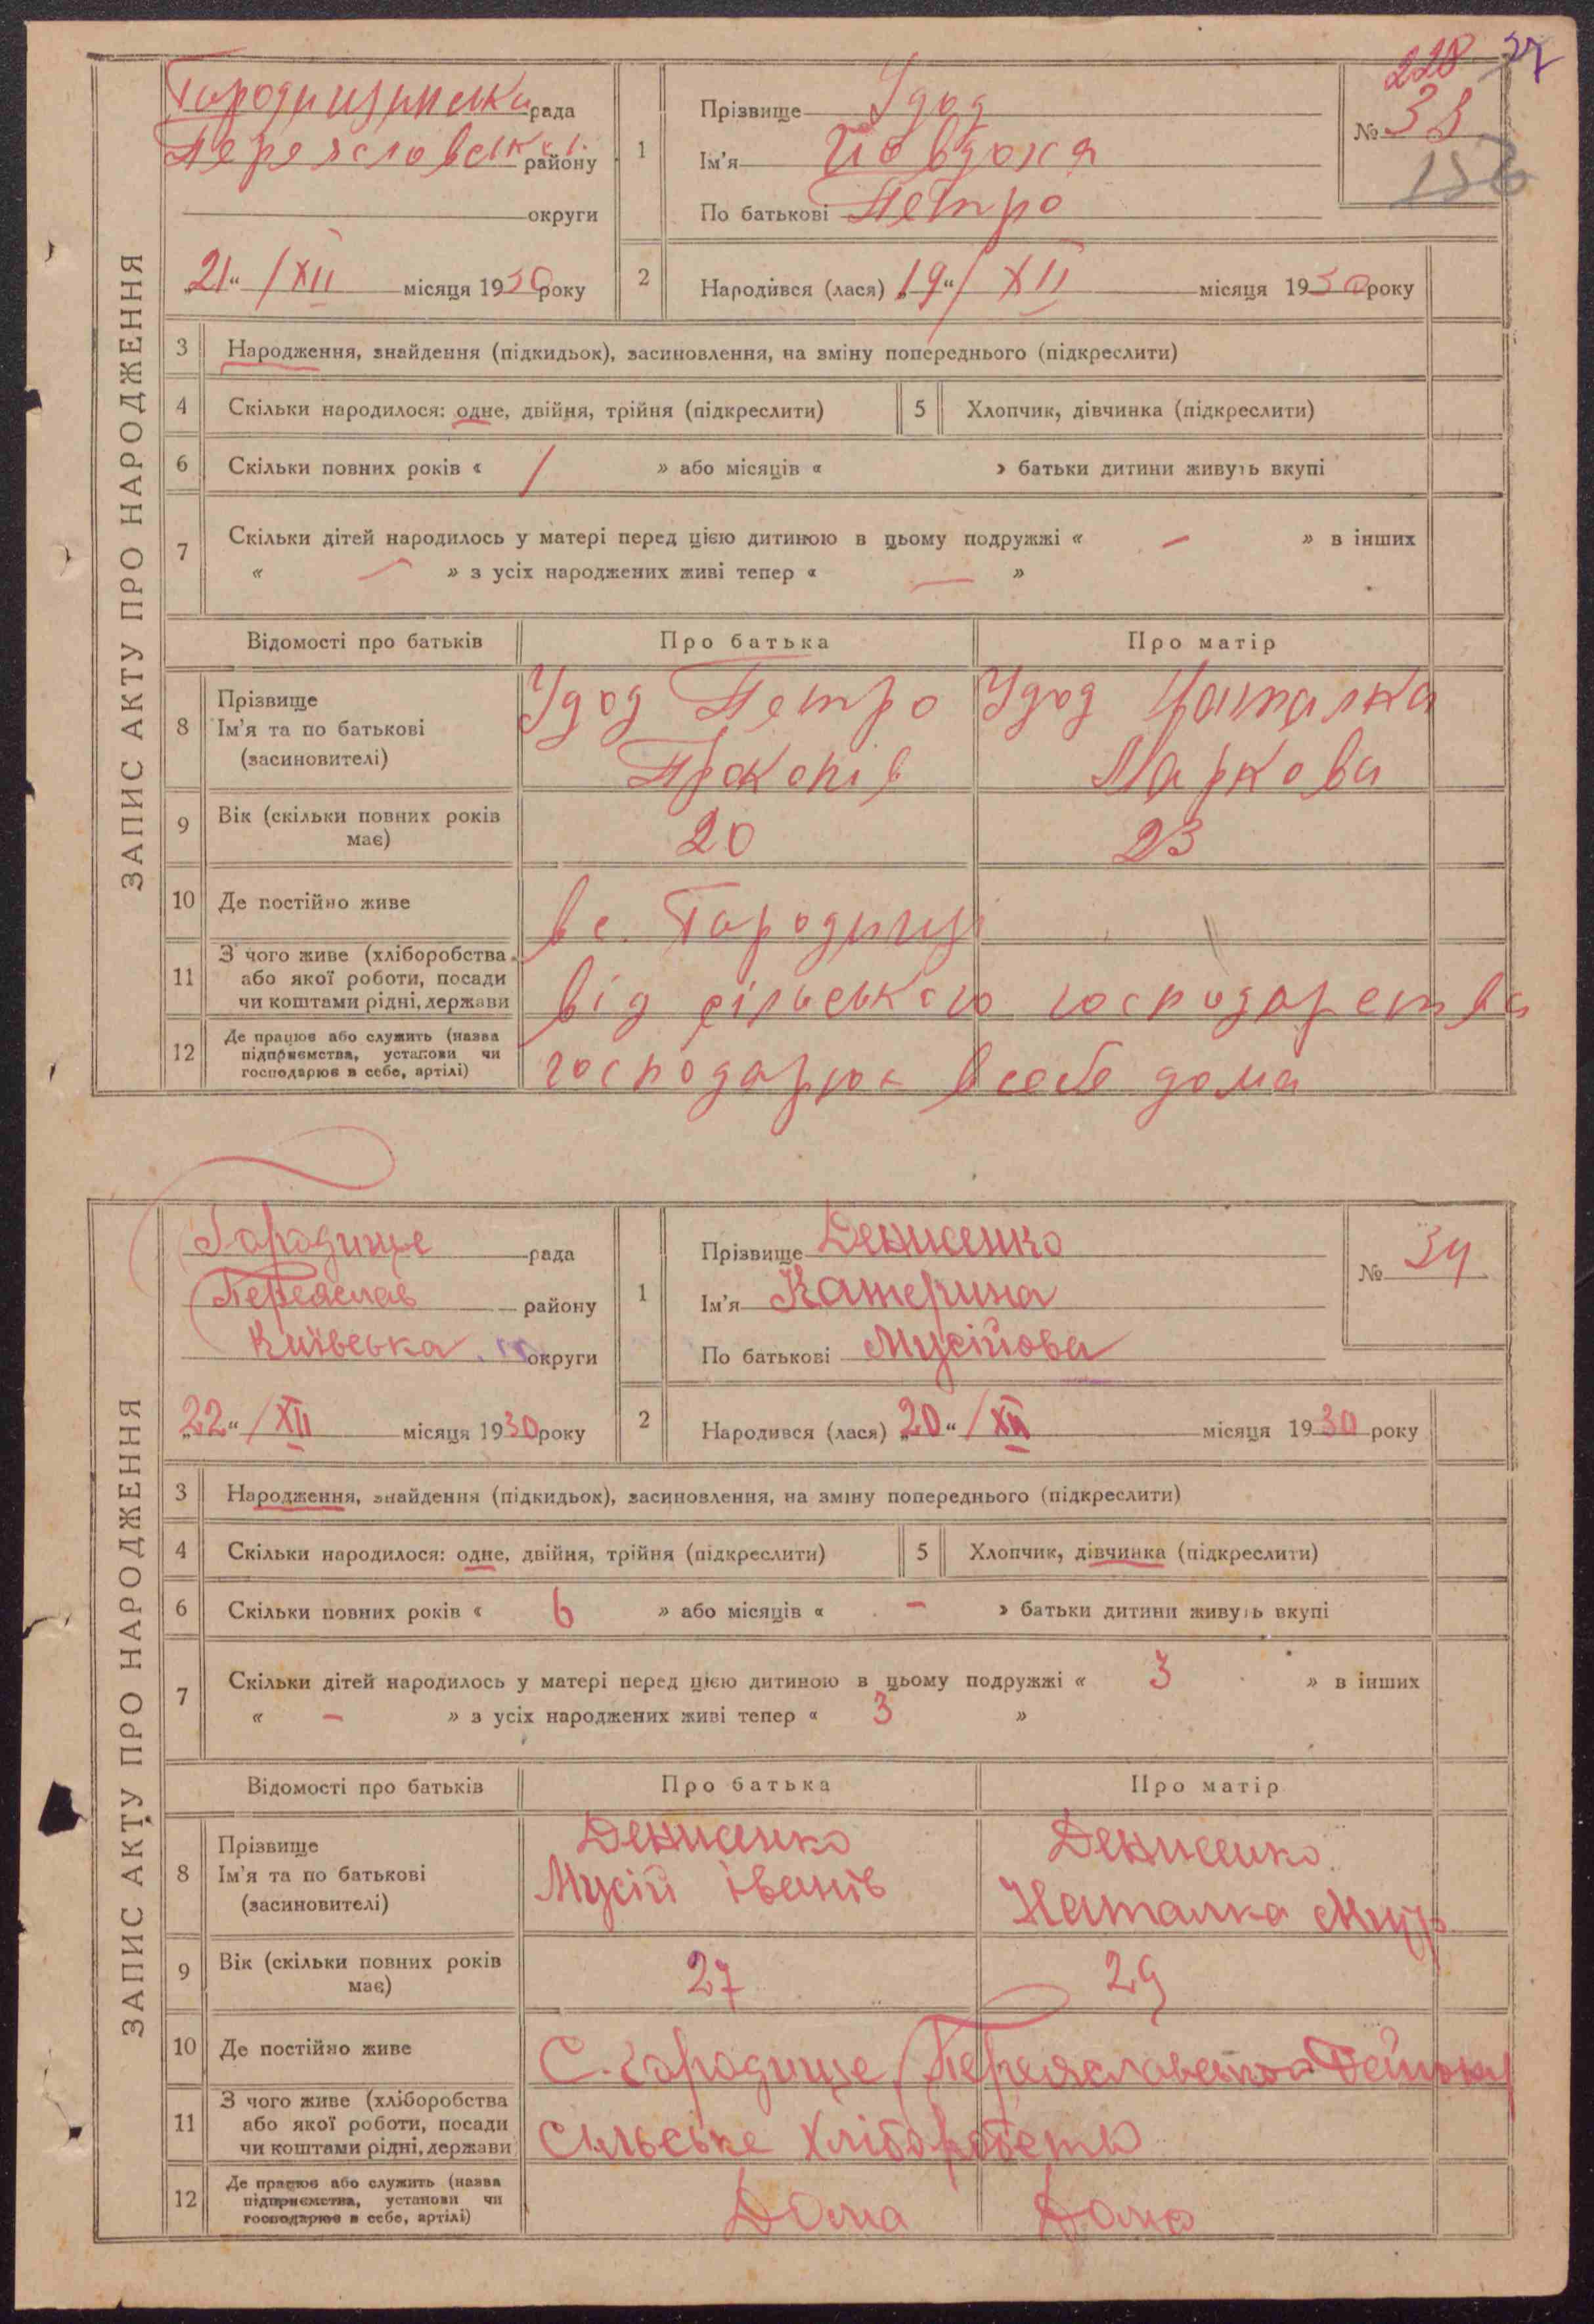 228 37
Городищинська рада
Переяславськ. району
округи
„21“ / XII місяця 1930 року
1
Прізвище Удод
Ім'я Йовдоха
По батькові Петро
№ 33
156
2 Народився (лася) „19“ / XII місяця 1930 року
ЗАПИС АКТУ ПРО НАРОДЖЕННЯ
3 Народження, знайдення (підкидьок), засиновлення, на зміну попереднього (підкреслити)
4 Скільки народилося: одне, двійня, трійня (підкреслити) 5 Хлопчик, дівчинка (підкреслити)
6 Скільки повних років « 1 » або місяців « » батьки дитини живуть вкупі
7 Скільки дітей народилось у матері перед цією дитиною в цьому подружжі « – » в інших
« – » з усіх народжених живі тепер « — »
Відомості про батьків Про батька Про матір
8 Прізвище
Ім'я та по батькові
(засиновителі)
Удод Петро
Прокопів
Удод Наталка
Маркова
9 Вік (скільки повних років
має)
20 23
10 Де постійно живе
в с. Городищі "
11 З чого живе (хліборобства
або якої роботи, посади
чи коштами рідні, держави
від сільського господарства
12 Де працює або служить (назва
підприємства, установи чи
господарює в себе, артілі)
господарює в себе дома
Городище рада
Переяслав району
Київська округи
„22“ / XII місяця 1930 року
1
Прізвище Денисенко
Ім'я Катерина
По батькові Мусійова
№ 34
2 Народився (лася) „20“ / XII місяця 1930 року
ЗАПИС АКТУ ПРО НАРОДЖЕННЯ
3 Народження, знайдення (підкидьок), засиновлення, на зміну попереднього (підкреслити)
4 Скільки народилося: одне, двійня, трійня (підкреслити) 5 Хлопчик, дівчинка (підкреслити)
6 Скільки повних років « 6 » або місяців « – » батьки дитини живуть вкупі
7 Скільки дітей народилось у матері перед цією дитиною в цьому подружжі « 3 » в інших
« – » з усіх народжених живі тепер « 3 »
Відомості про батьків Про батька Про матір
8 Прізвище
Ім'я та по батькові
(засиновителі)
Денисенко
Мусій Іванів
Денисенко
Наталка
9 Вік (скільки повних років
має)
27 29
10 Де постійно живе
С. Городище Переяславського
11 З чого живе (хліборобства
або якої роботи, посади
чи коштами рідні, держави
Сільське хліборобство
12 Де працює або служить (назва
підприємства, установи чи
господарює в себе, артілі)
Дома Дома